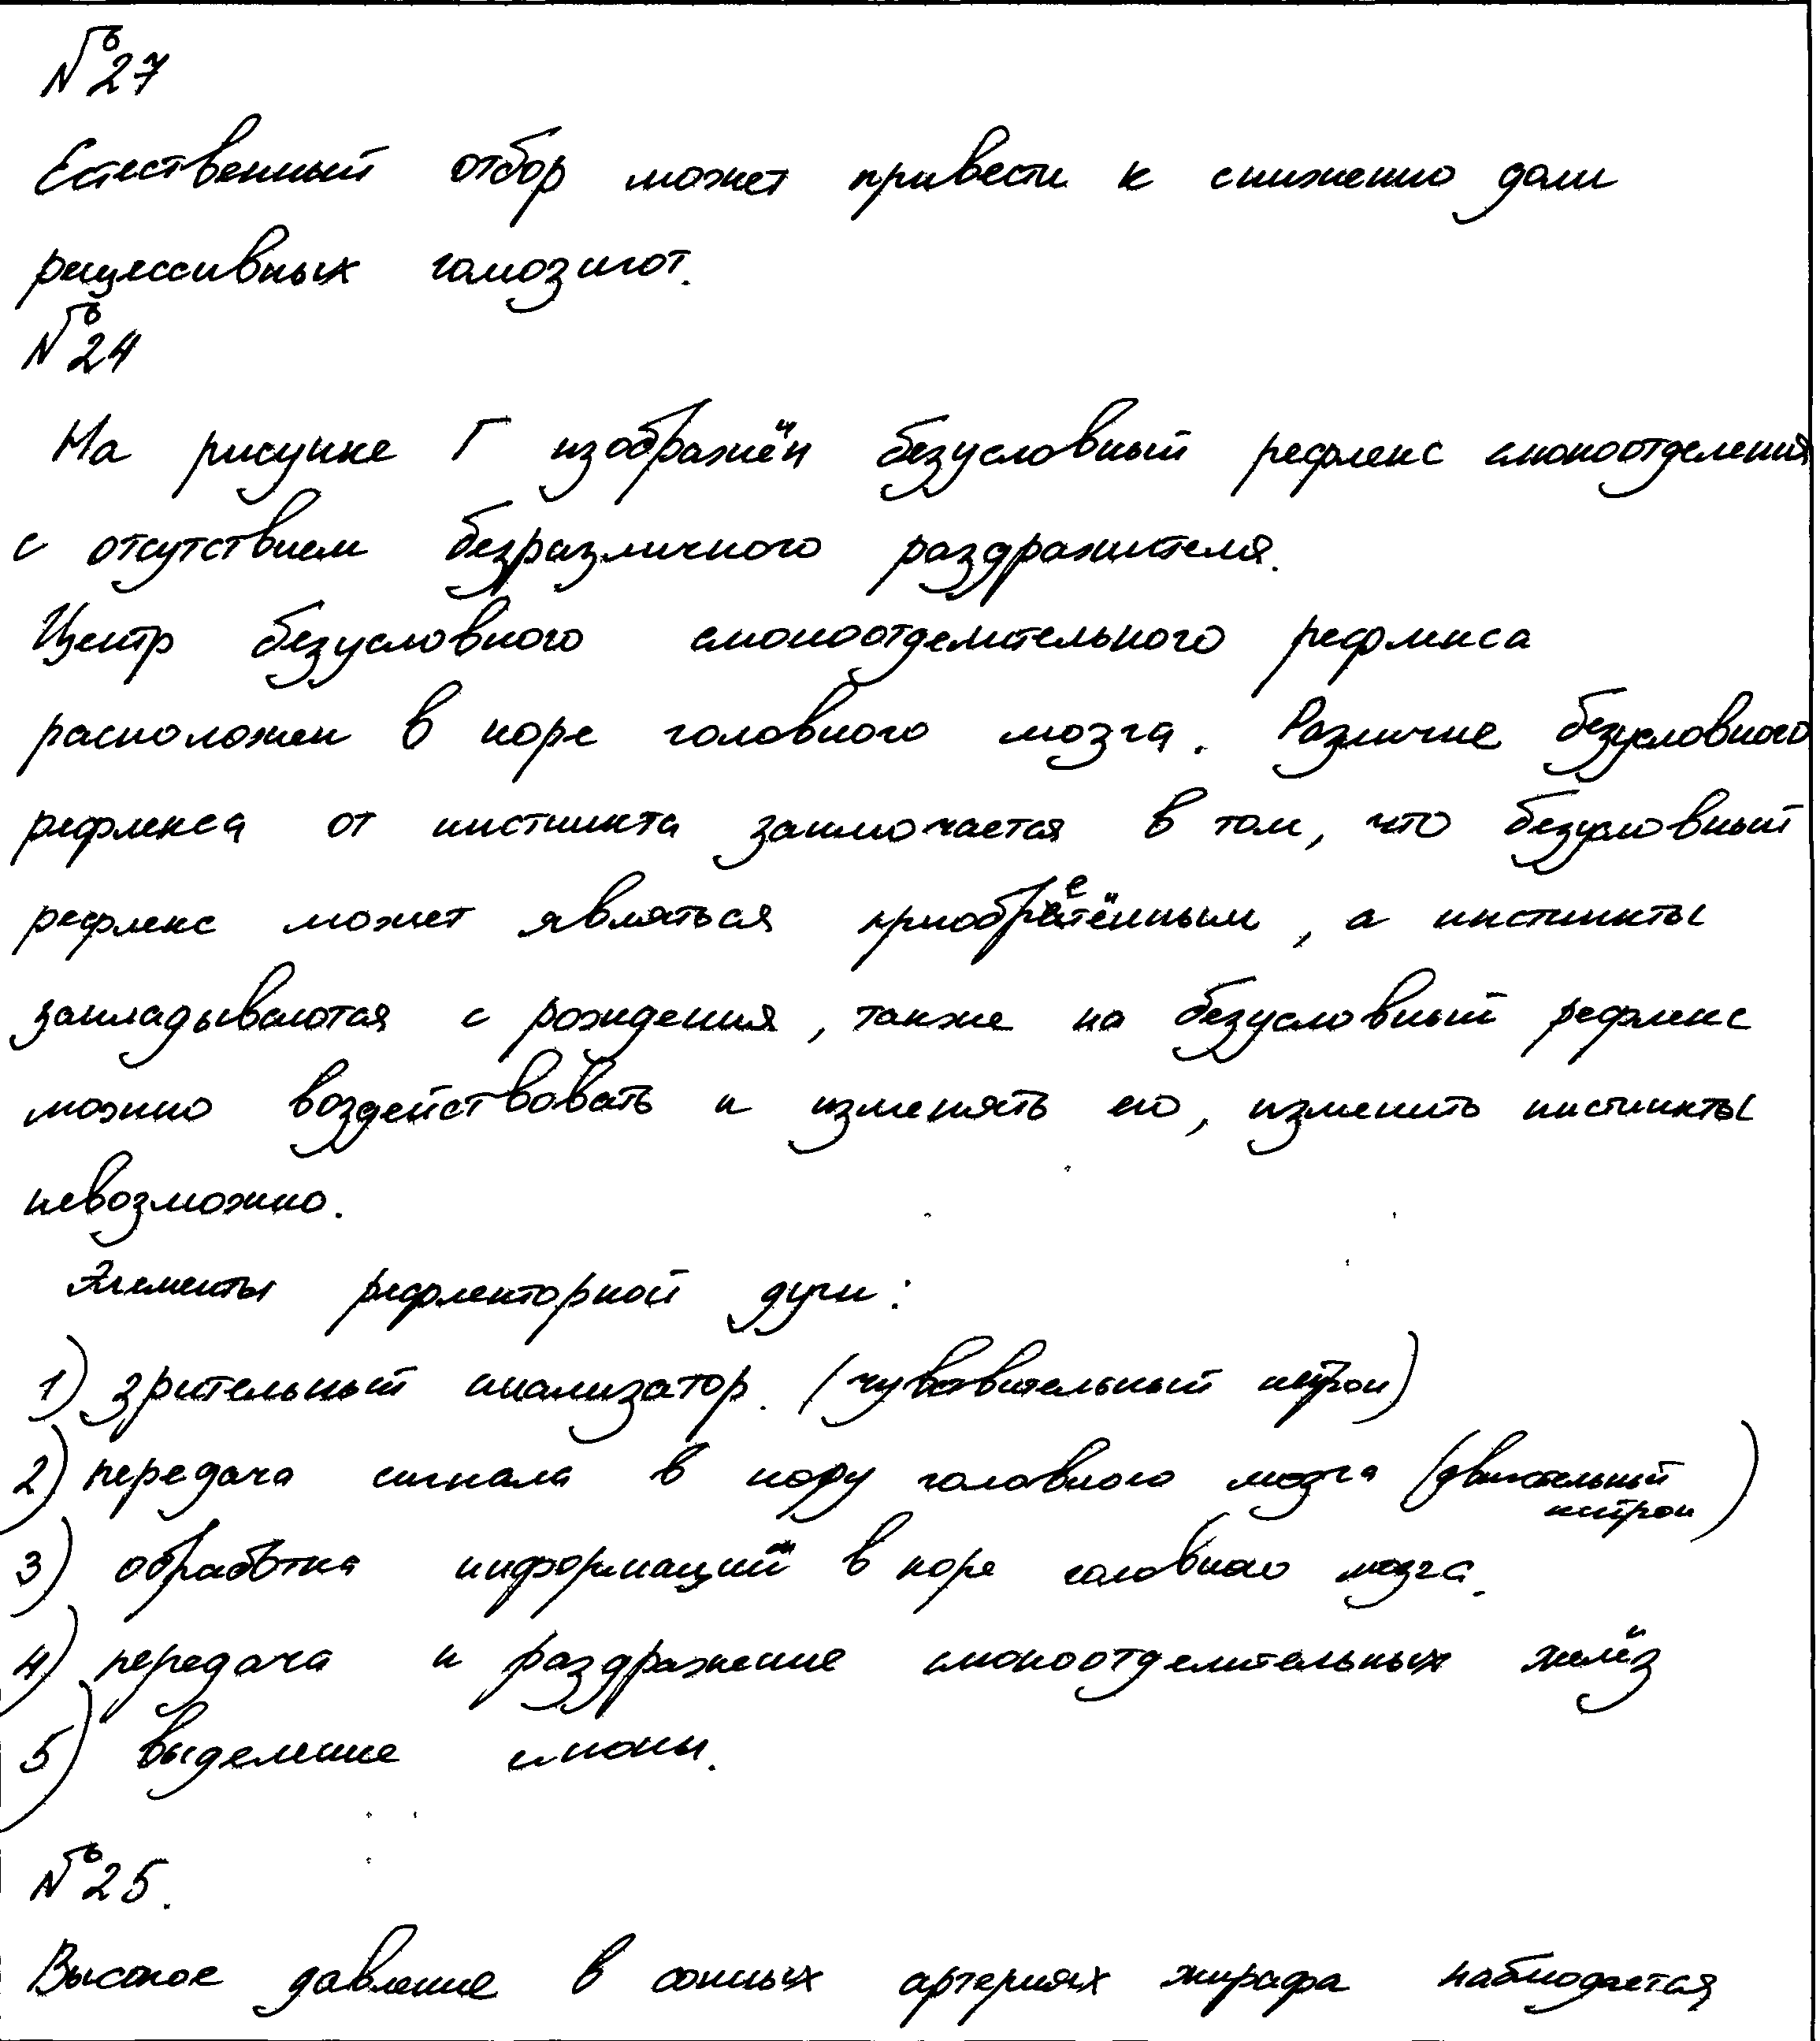 №27
Естественный отбор может привести к снижению доли
рецессивных гомозигот.
№24
На рисунке Г изображён безусловный рефлекс слюноотделения
с отсутствием безразличного раздражителя.
Центр безусловного слюноотделительного рефлекса
расположен в коре головного мозга. Различие безусловного
рефлекса от инстинкта заключается в том, что безусловный
рефлекс может являться приобретённым, а инстинкты
закладываются с рождения, также на безусловный рефлекс
можно воздействовать и изменять его, изменить инстинкты
невозможно.
Элементы рефлекторной дуги:
1) зрительный анализатор. (чувствительный нейрон)
2) передача сигнала в кору головного мозга (двигательный
нейрон)
3) обработка информации в коре головного мозга.
4) передача и раздражение слюноотделительных желёз
5) выделение слюны.
№25.
Высокое давление в сонных артериях жирафа наблюдается